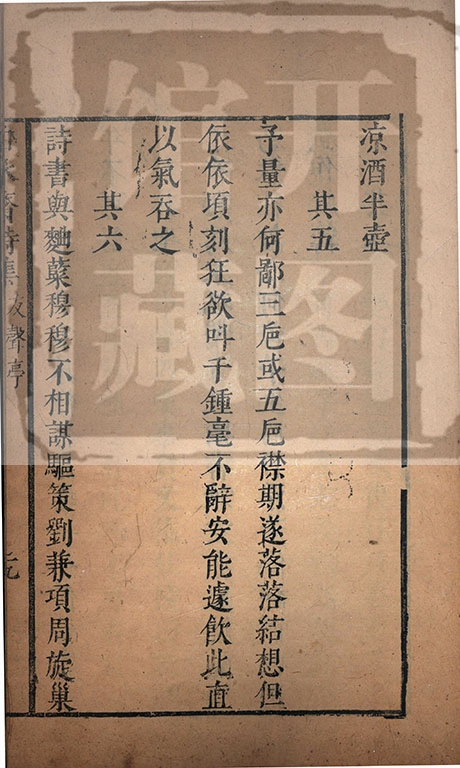 凉酒半壺
其五
予量亦何鄙三巵或五巵襟期遂落落結想但
依依項刻狂欲叫千鍾毫不辭安能遽飲此直
以氣吞之
其六
詩書與麯蘖穆穆不相謀驅策劉兼項周旋巢
詩集
聲亭
开图
馆藏